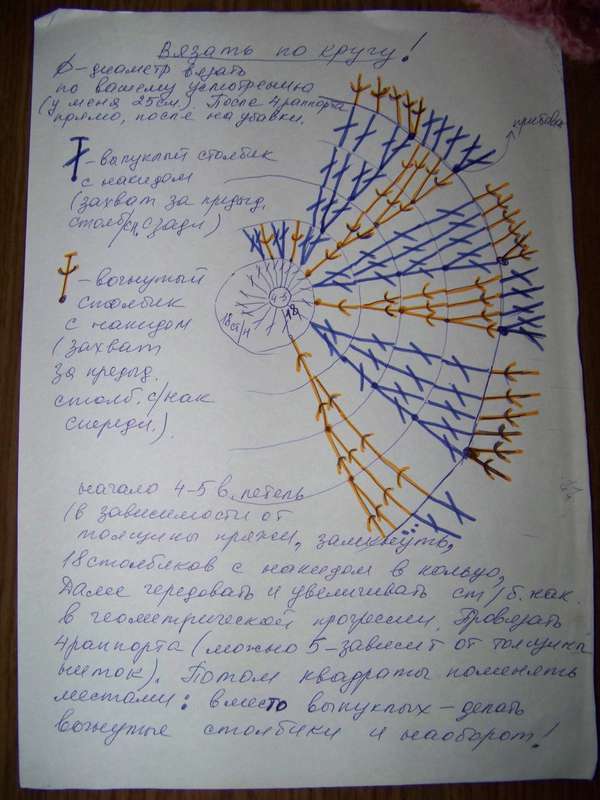 Вязать по кругу!
Ø-диаметр вязать
по вашему усмотрению
(у меня 25см). После 4раппорта
прямо, после на убавки.
прибавка
- выпуклый столбик
с накидом
(захват за предыд.
столб/сн, сзади)
- вогнутый
столбик
с накидом
(захват
за предыд.
столб. с/нак
спереди.)
4-5
18
18 ст/н
начало 4-5 в. петель
(в зависимости от
толщины пряжи, замкнуть,
18 столбиков с накидом в кольцо,
Далее чередовать и увеличивать ст/б. нак.
в геометрической прогресии. Провязать
4раппорта (можно 5-зависит от толщины
ниток). Потом квадраты поменять
местами: вместо выпуклых - делать
вогнутые столбики и наоборот!